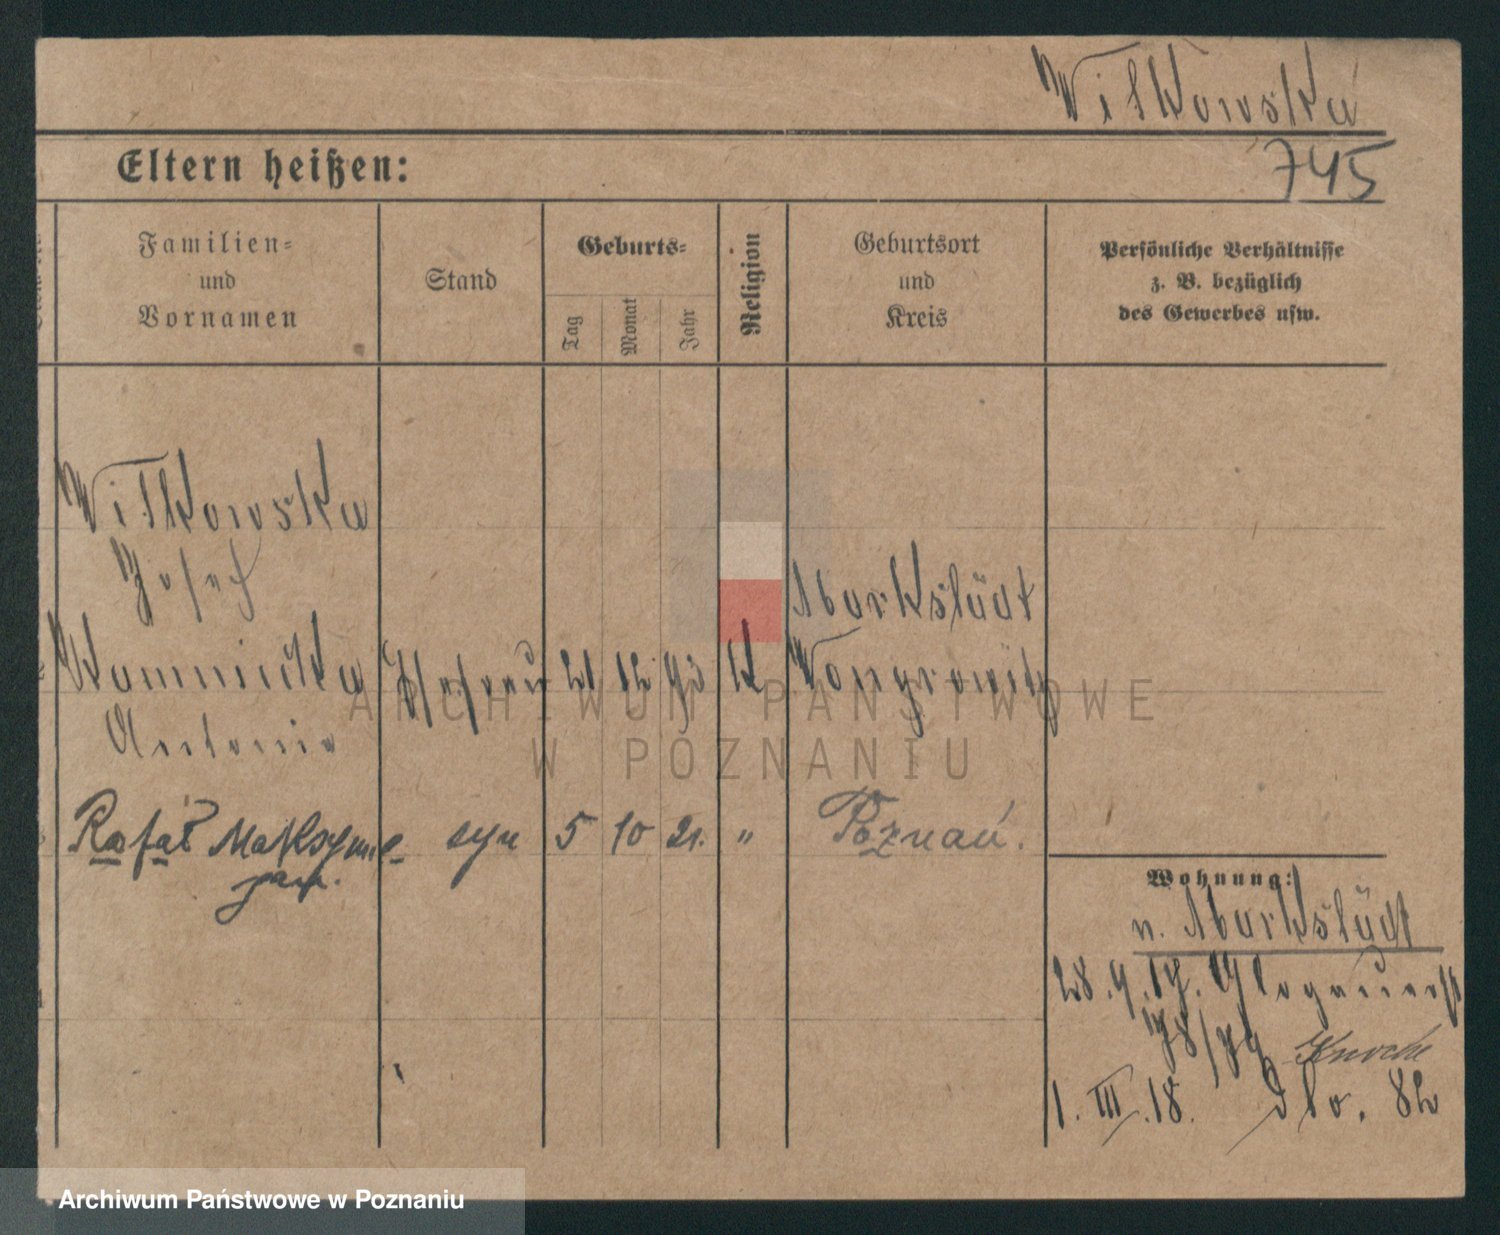 Witkowska
745
Eltern heißen:
Familien=
und
Vornamen
Stand
Geburts=
Tag
Monat
Jahr
Religion
Geburtsort
und
Kreis
Persönliche Verhältnisse
z. B. bezüglich
des Gewerbes usw.
Witkowska
Josef
Antonie
21 12 93 K
Markstädt
Wongrowitz
Rafał Maksymil-
jan.
syn 5 10 21. " Poznań.
Wohnung:
n. Markstädt
28.9.17. Glogauerst
78/79 Knoche
1. III. 18. dto. 82
ARCHIWUM PAŃSTWOWE
W POZNANIU
Archiwum Państwowe w Poznaniu